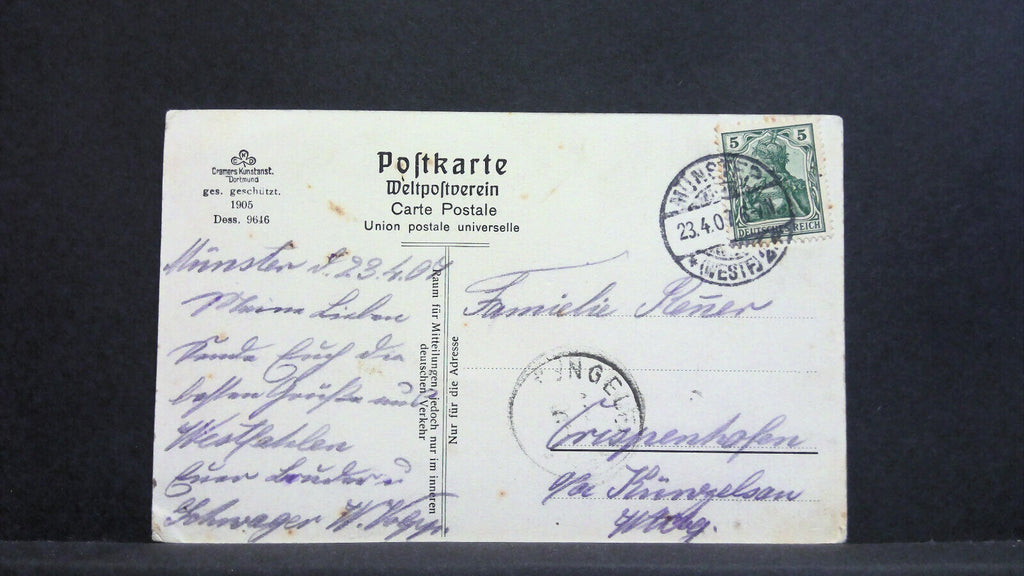 Cramers Kunstanst.
Dortmund
ges. geschützt.
1905
Dess. 9616
Postkarte
Weltpostverein
Carte Postale
Union postale universelle
5 5
DEUTSCHES REICH
MÜNSTER
23.4.07
*(WESTF.)2
Münster d. 23.4.07
Meine Lieben
Sende Euch die
besten Grüße aus
Westfahlen
Euer Bruder u
Schwager W.
Raum für Mitteilungen, jedoch nur im inneren
deutschen Verkehr
Nur für die Adresse
Familie
KÜNGELS
Crispenhofen
Künzelsau
Wttbg.